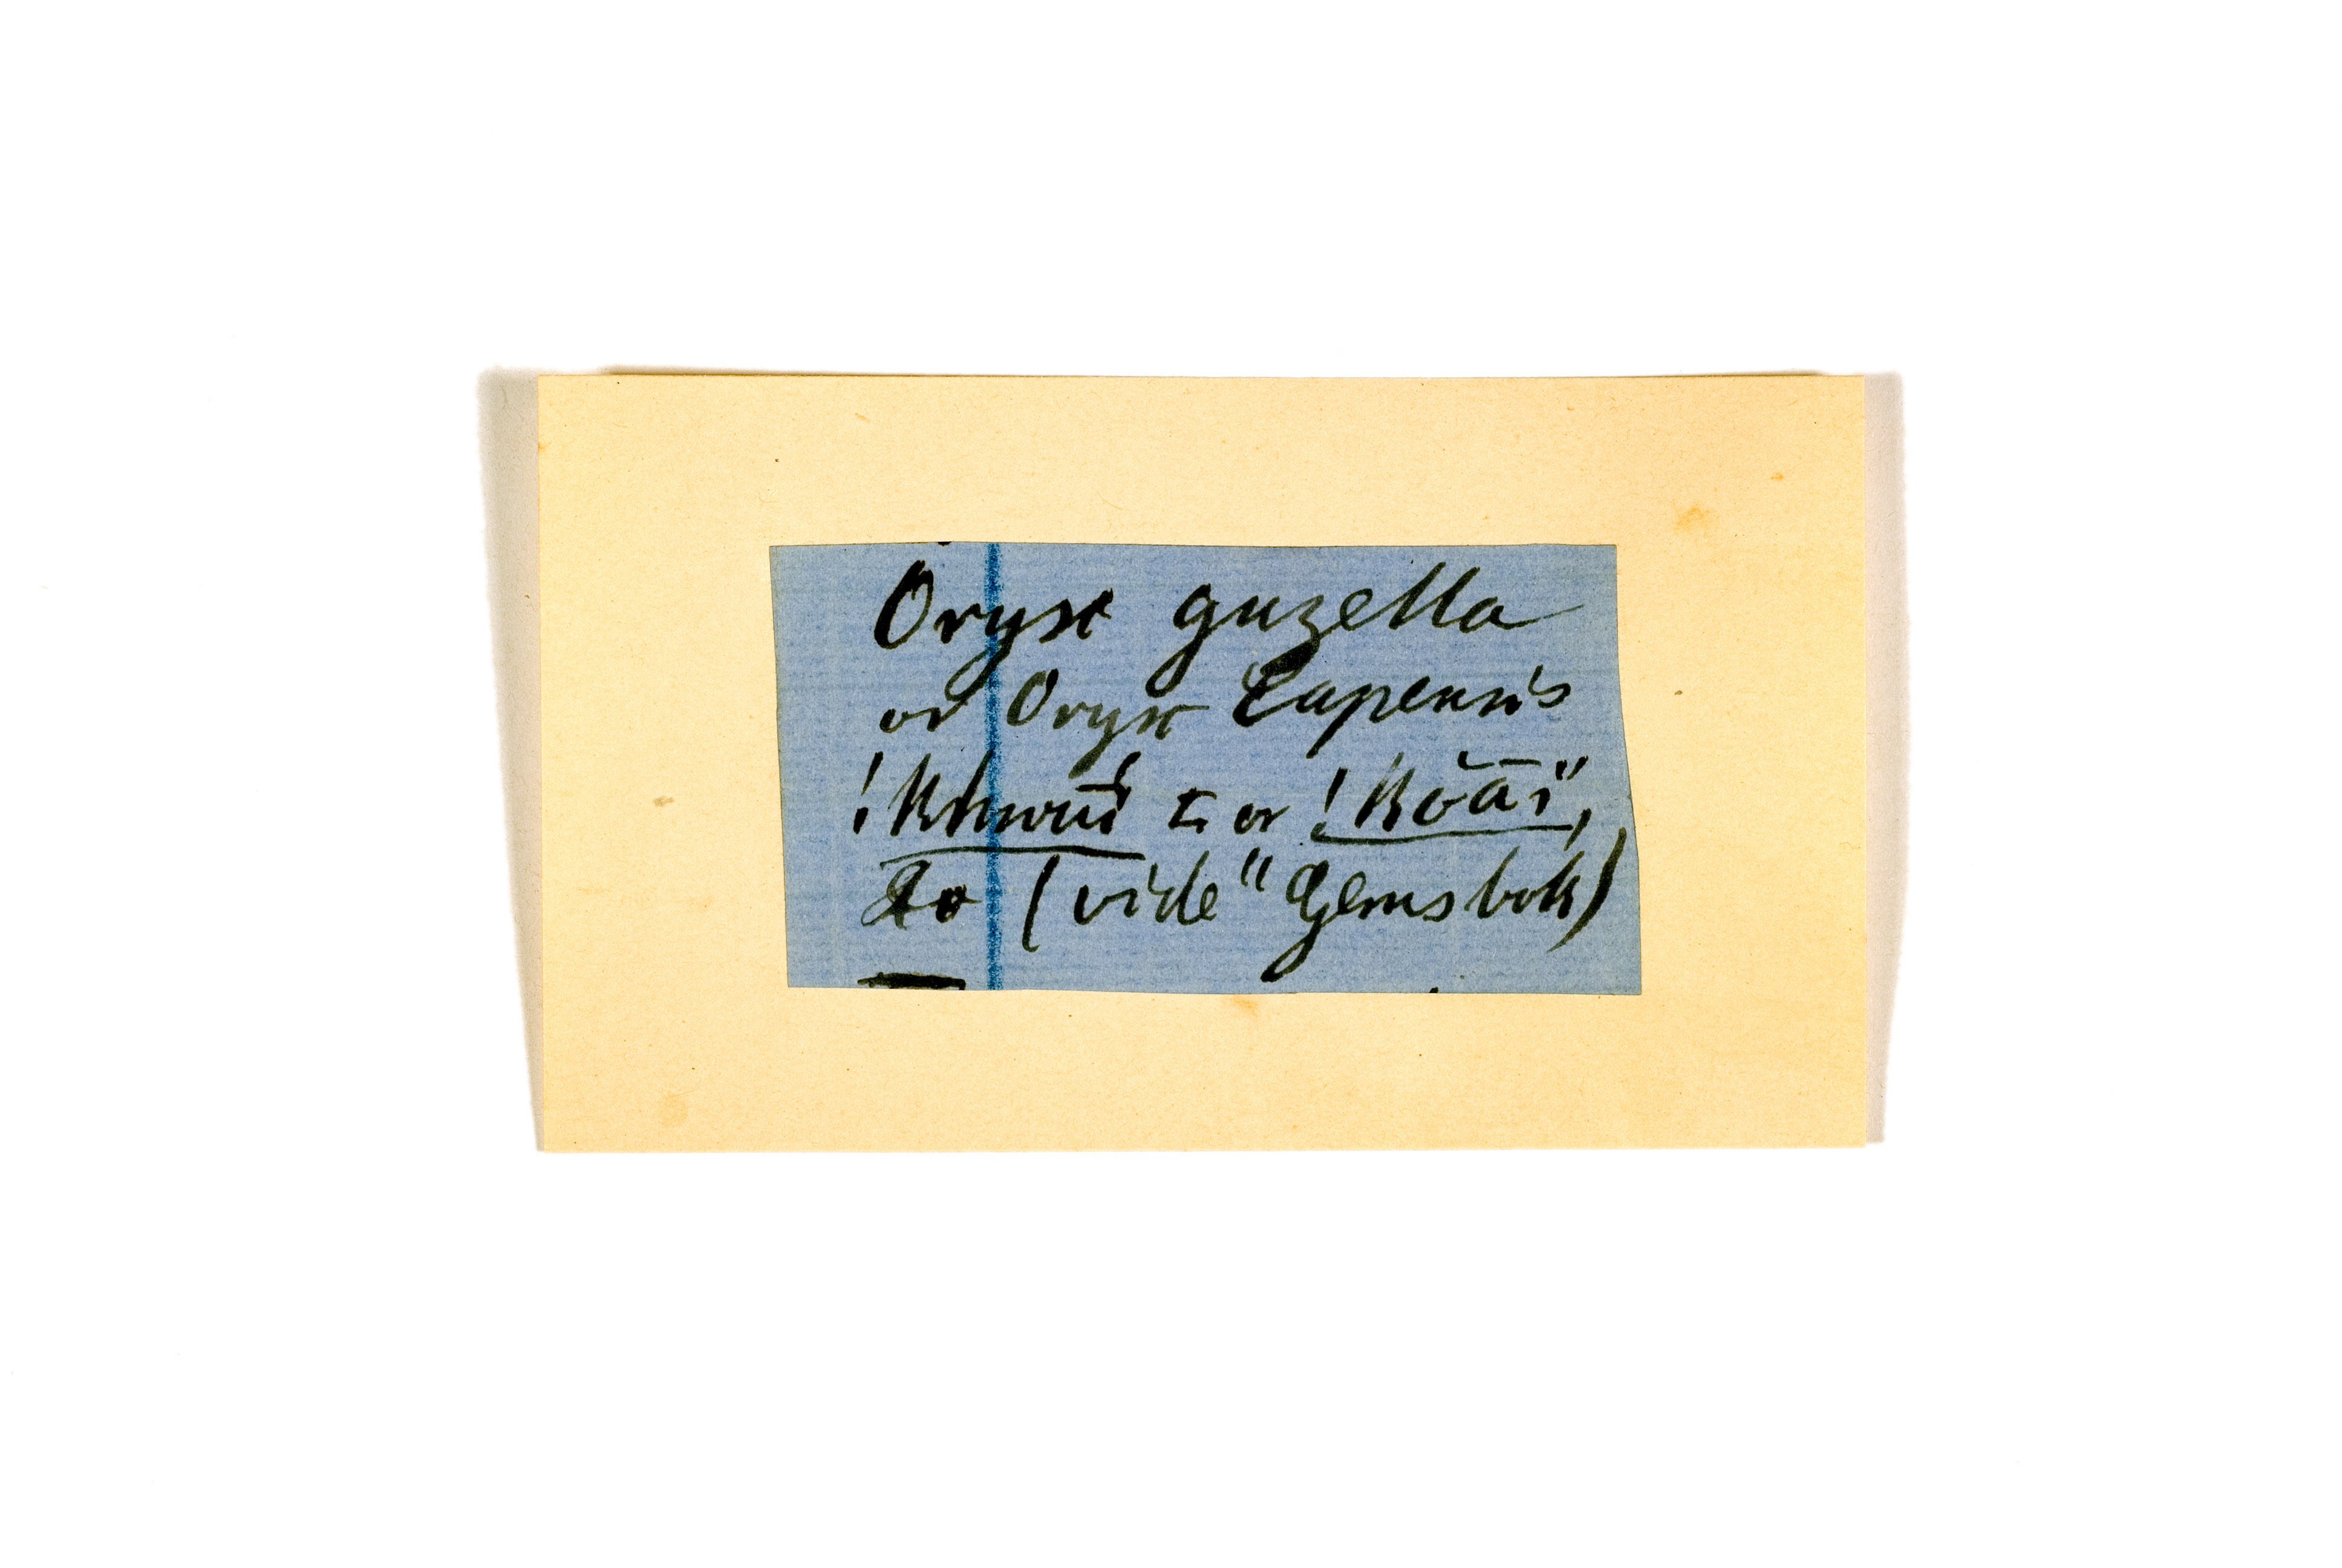 Oryx gazella
or Oryx Capensis
or !Kŏāï",
(vide "Gemsbok)